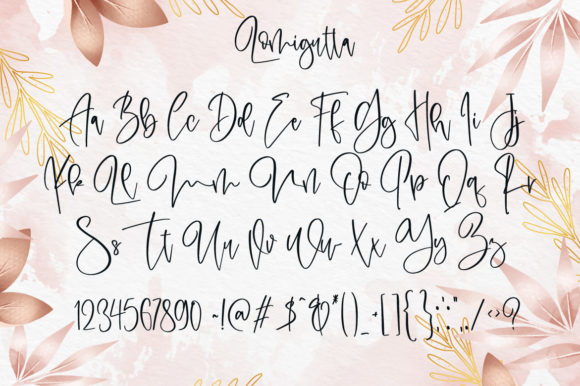 Lomigutta
Aa Bb Cc Dd Ee Ff Gg Hh Ii Jj
Kk Ll Mm Nn Oo Pp Qq Rr
Ss Tt Uu Vv Ww Xx Yy Zz
1234567890 ~!@# $^&*()_+[]{}:;'",./<>?